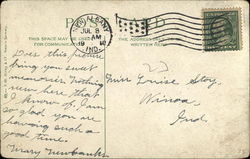 NEW ALBANY
JUL 8
AM
19
IND.
THIS SPACE MAY BE USED
FOR COMMUNICATION
THE ADDRESS
WRITTEN HERE
Does this picture
bring you sweet
memories. Nothing
new here that
I know of. I am
so glad you are
having such a
good time.
Mary Newbanks
Miss Louise Story,
Winona
Ind.